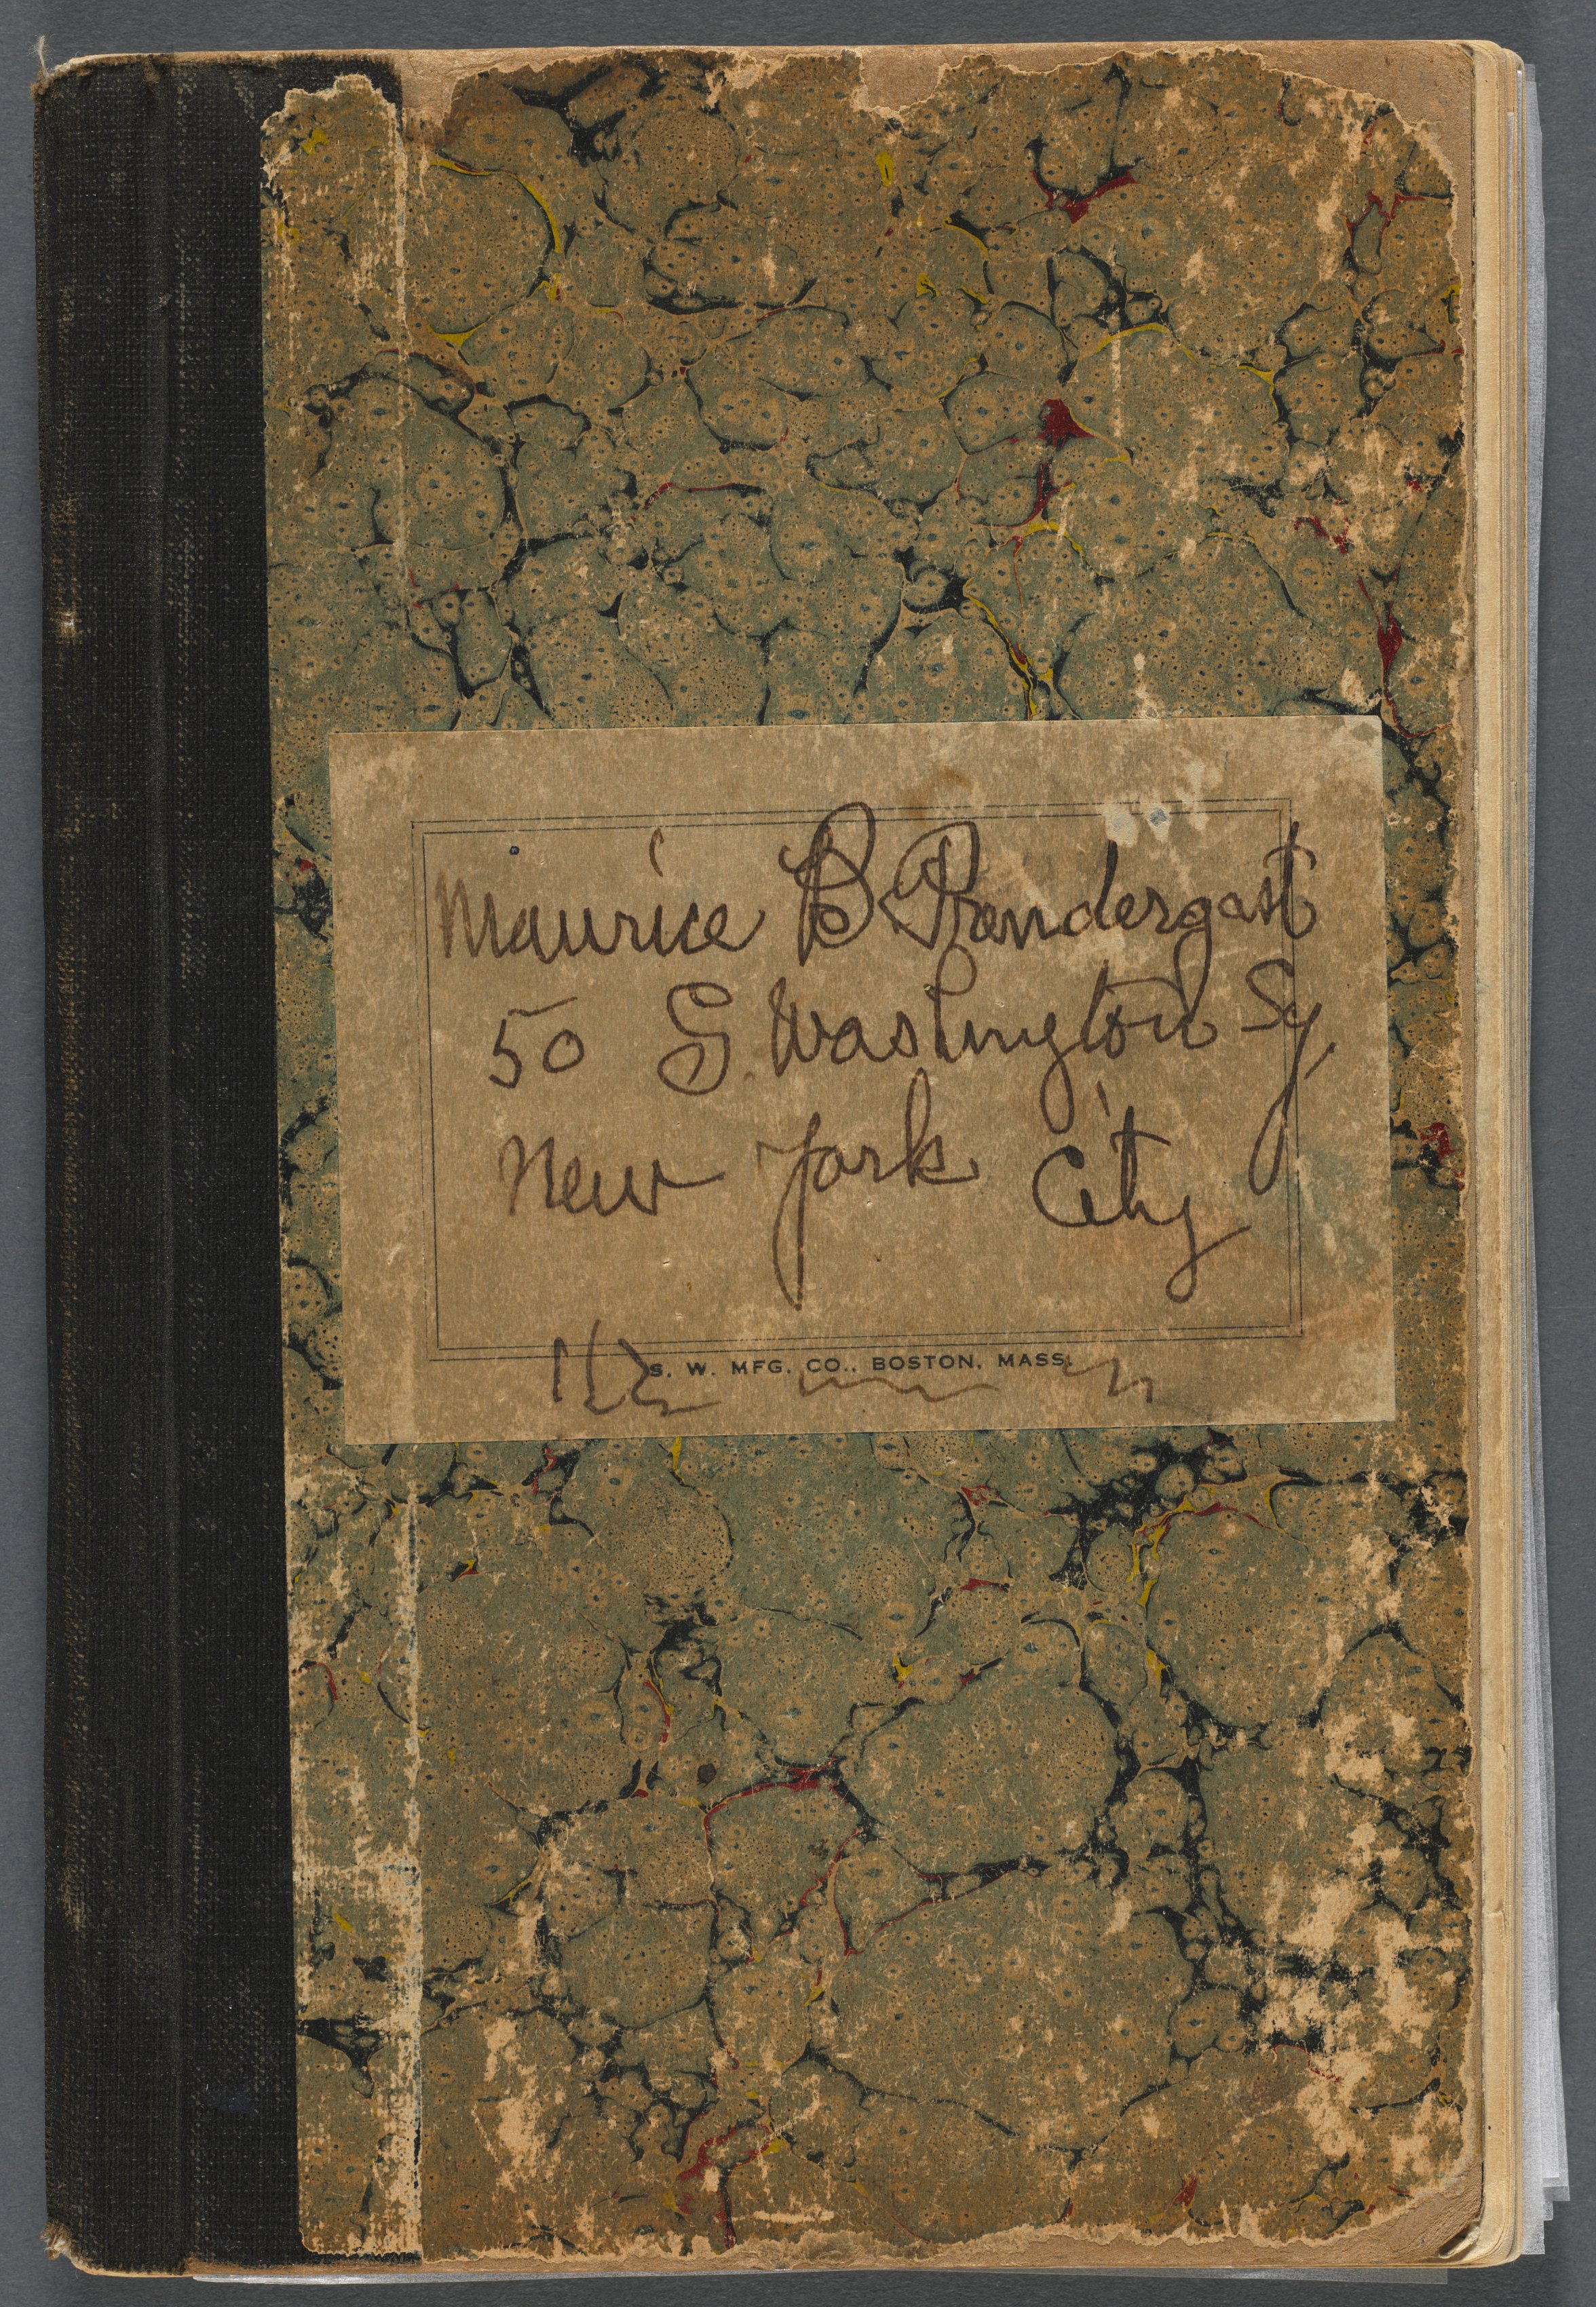 Maurice B. Prendergast
50 S. Washington Sq.
New York City
S. W. MFG. CO., BOSTON, MASS.